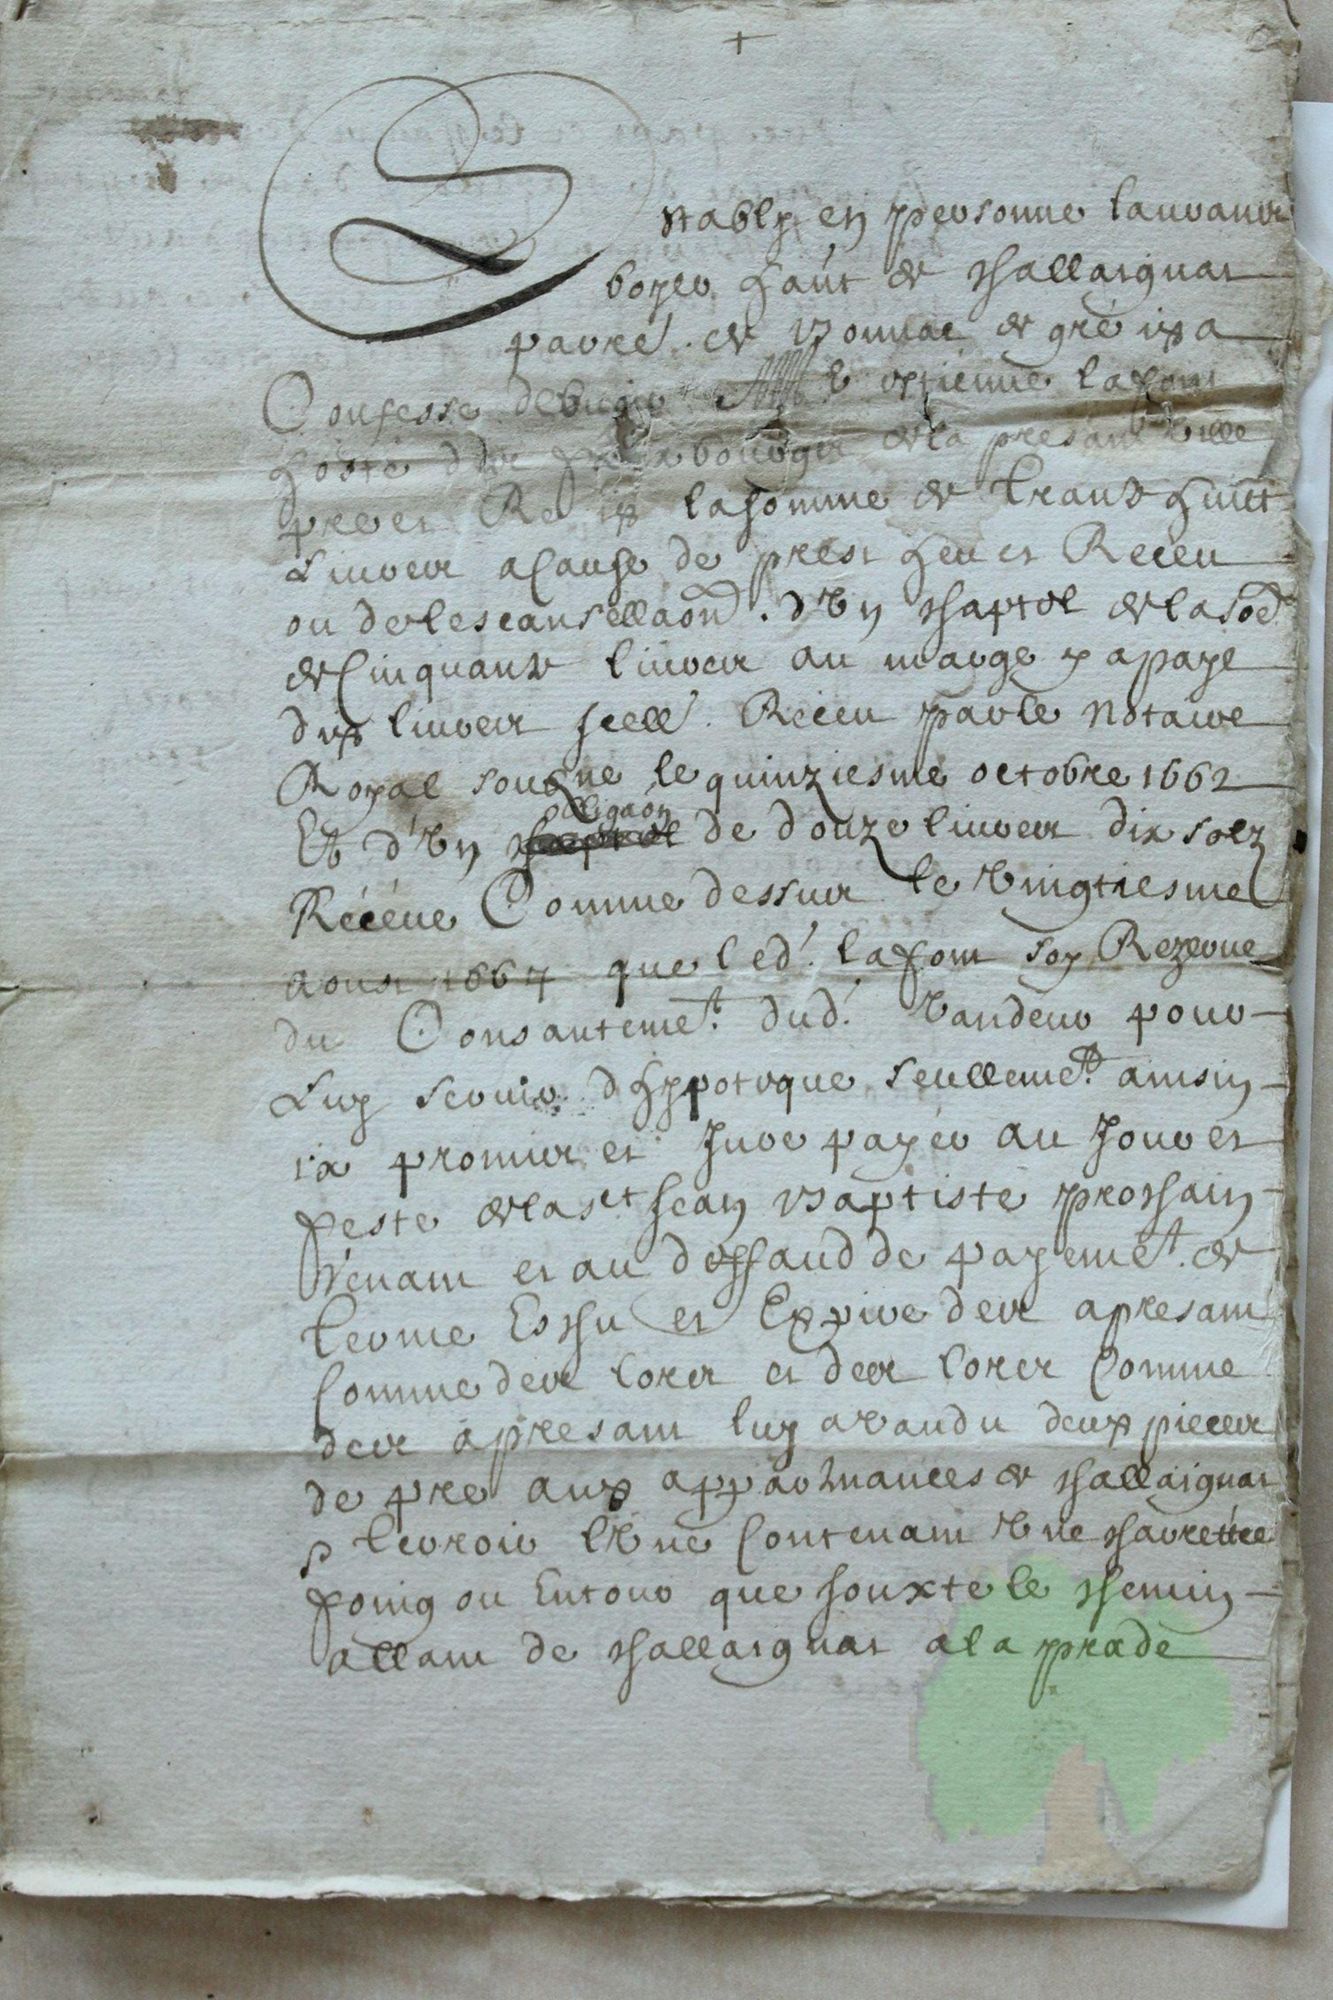 Establÿ en personne laurans
boyer habt de challaignat
parre. de Vonnac de gre il a
Confesse debvoir a Mr estienne lafont
hoste dud bourgs de la presant ville
pnt et la somme de trante huict
Livres a cause de prest heu et Receu
ou de les cansellaon. d'Vn chaptel de la soe
de Cinquante livres au marge y a paye
dix livres scell. Receu par le notaire
Royal soubzne le quinziesme octobre 1662
Et d'Vn obligaon de douze livres dix solz
Recéue Comme dessus le Vingtiesme
aoust 1664 que led. lafont soy Rezerve
du Consanteme.t dud. Vandeur pour
Luy servir dhypoteque seulleme.t ainsin
la promis et Jure payer au Jour et
feste de la s.ct Jean Baptiste prochain
Venant et au deffaud de payeme.t de
terme Eschu et Expire des apresant
Comme des lores et des lores Comme
des apresant luy a Vandu deux pieces
de pre aux appartenances de challaignat
terroir lVne Contenant Vne charettée
foing ou Entour que Jouxte le chemin
allant de challaignat a la prade